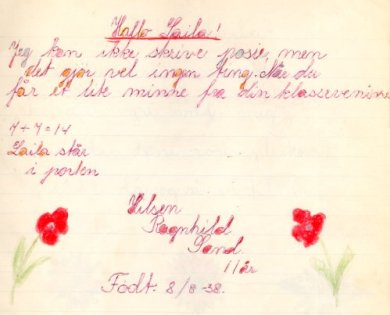 Hallo Laila!
Jeg kan ikke skrive posie, men
det gjør vel ingen ting. Når du
får et lite minne fra din klassevenine
7+7=14
Laila står
i porten
Hilsen
Ragnhild
Sand
11 år
Født: 8/8-38.